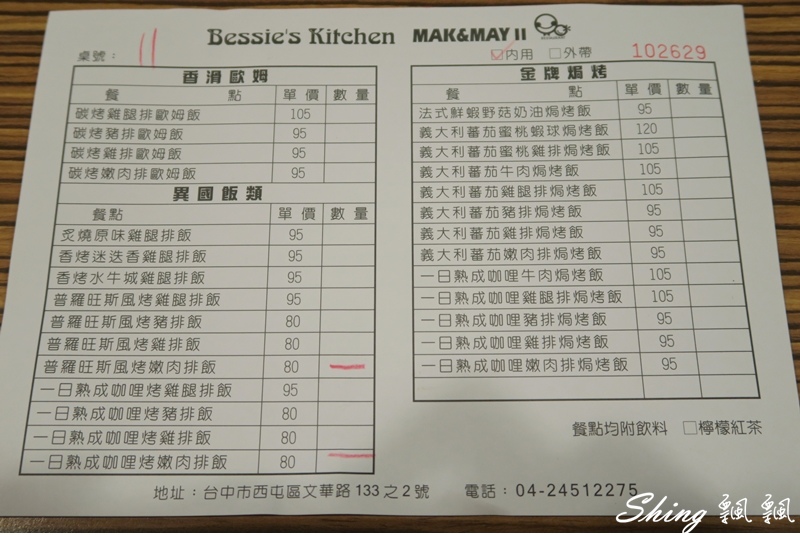 Bessie's Kitchen MAK&MAY II
桌號： 11
☑內用 □外帶 102629
香滑歐姆
餐 點 單價 數量
碳烤雞腿排歐姆飯 105
碳烤豬排歐姆飯 95
碳烤雞排歐姆飯 95
碳烤嫩肉排歐姆飯 95
異國飯類
餐點 單價 數量
炙燒原味雞腿排飯 95
香烤迷迭香雞腿排飯 95
香烤水牛城雞腿排飯 95
普羅旺斯風烤雞腿排飯 95
普羅旺斯風烤豬排飯 80
普羅旺斯風烤雞排飯 80
普羅旺斯風烤嫩肉排飯 80
一日熟成咖哩烤雞腿排飯 95
一日熟成咖哩烤豬排飯 80
一日熟成咖哩烤雞排飯 80
一日熟成咖哩烤嫩肉排飯 80
金牌焗烤
餐 點 單價 數量
法式鮮蝦野菇奶油焗烤飯 95
義大利蕃茄蜜桃蝦球焗烤飯 120
義大利蕃茄蜜桃雞排焗烤飯 105
義大利蕃茄牛肉焗烤飯 105
義大利蕃茄雞腿排焗烤飯 105
義大利蕃茄豬排焗烤飯 95
義大利蕃茄雞排焗烤飯 95
義大利蕃茄嫩肉排焗烤飯 95
一日熟成咖哩牛肉焗烤飯 105
一日熟成咖哩雞腿排焗烤飯 105
一日熟成咖哩豬排焗烤飯 95
一日熟成咖哩雞排焗烤飯 95
一日熟成咖哩嫩肉排焗烤飯 95
餐點均附飲料 □檸檬紅茶
地址：台中市西屯區文華路133之2號 電話：04-24512275
Shing 飄飄